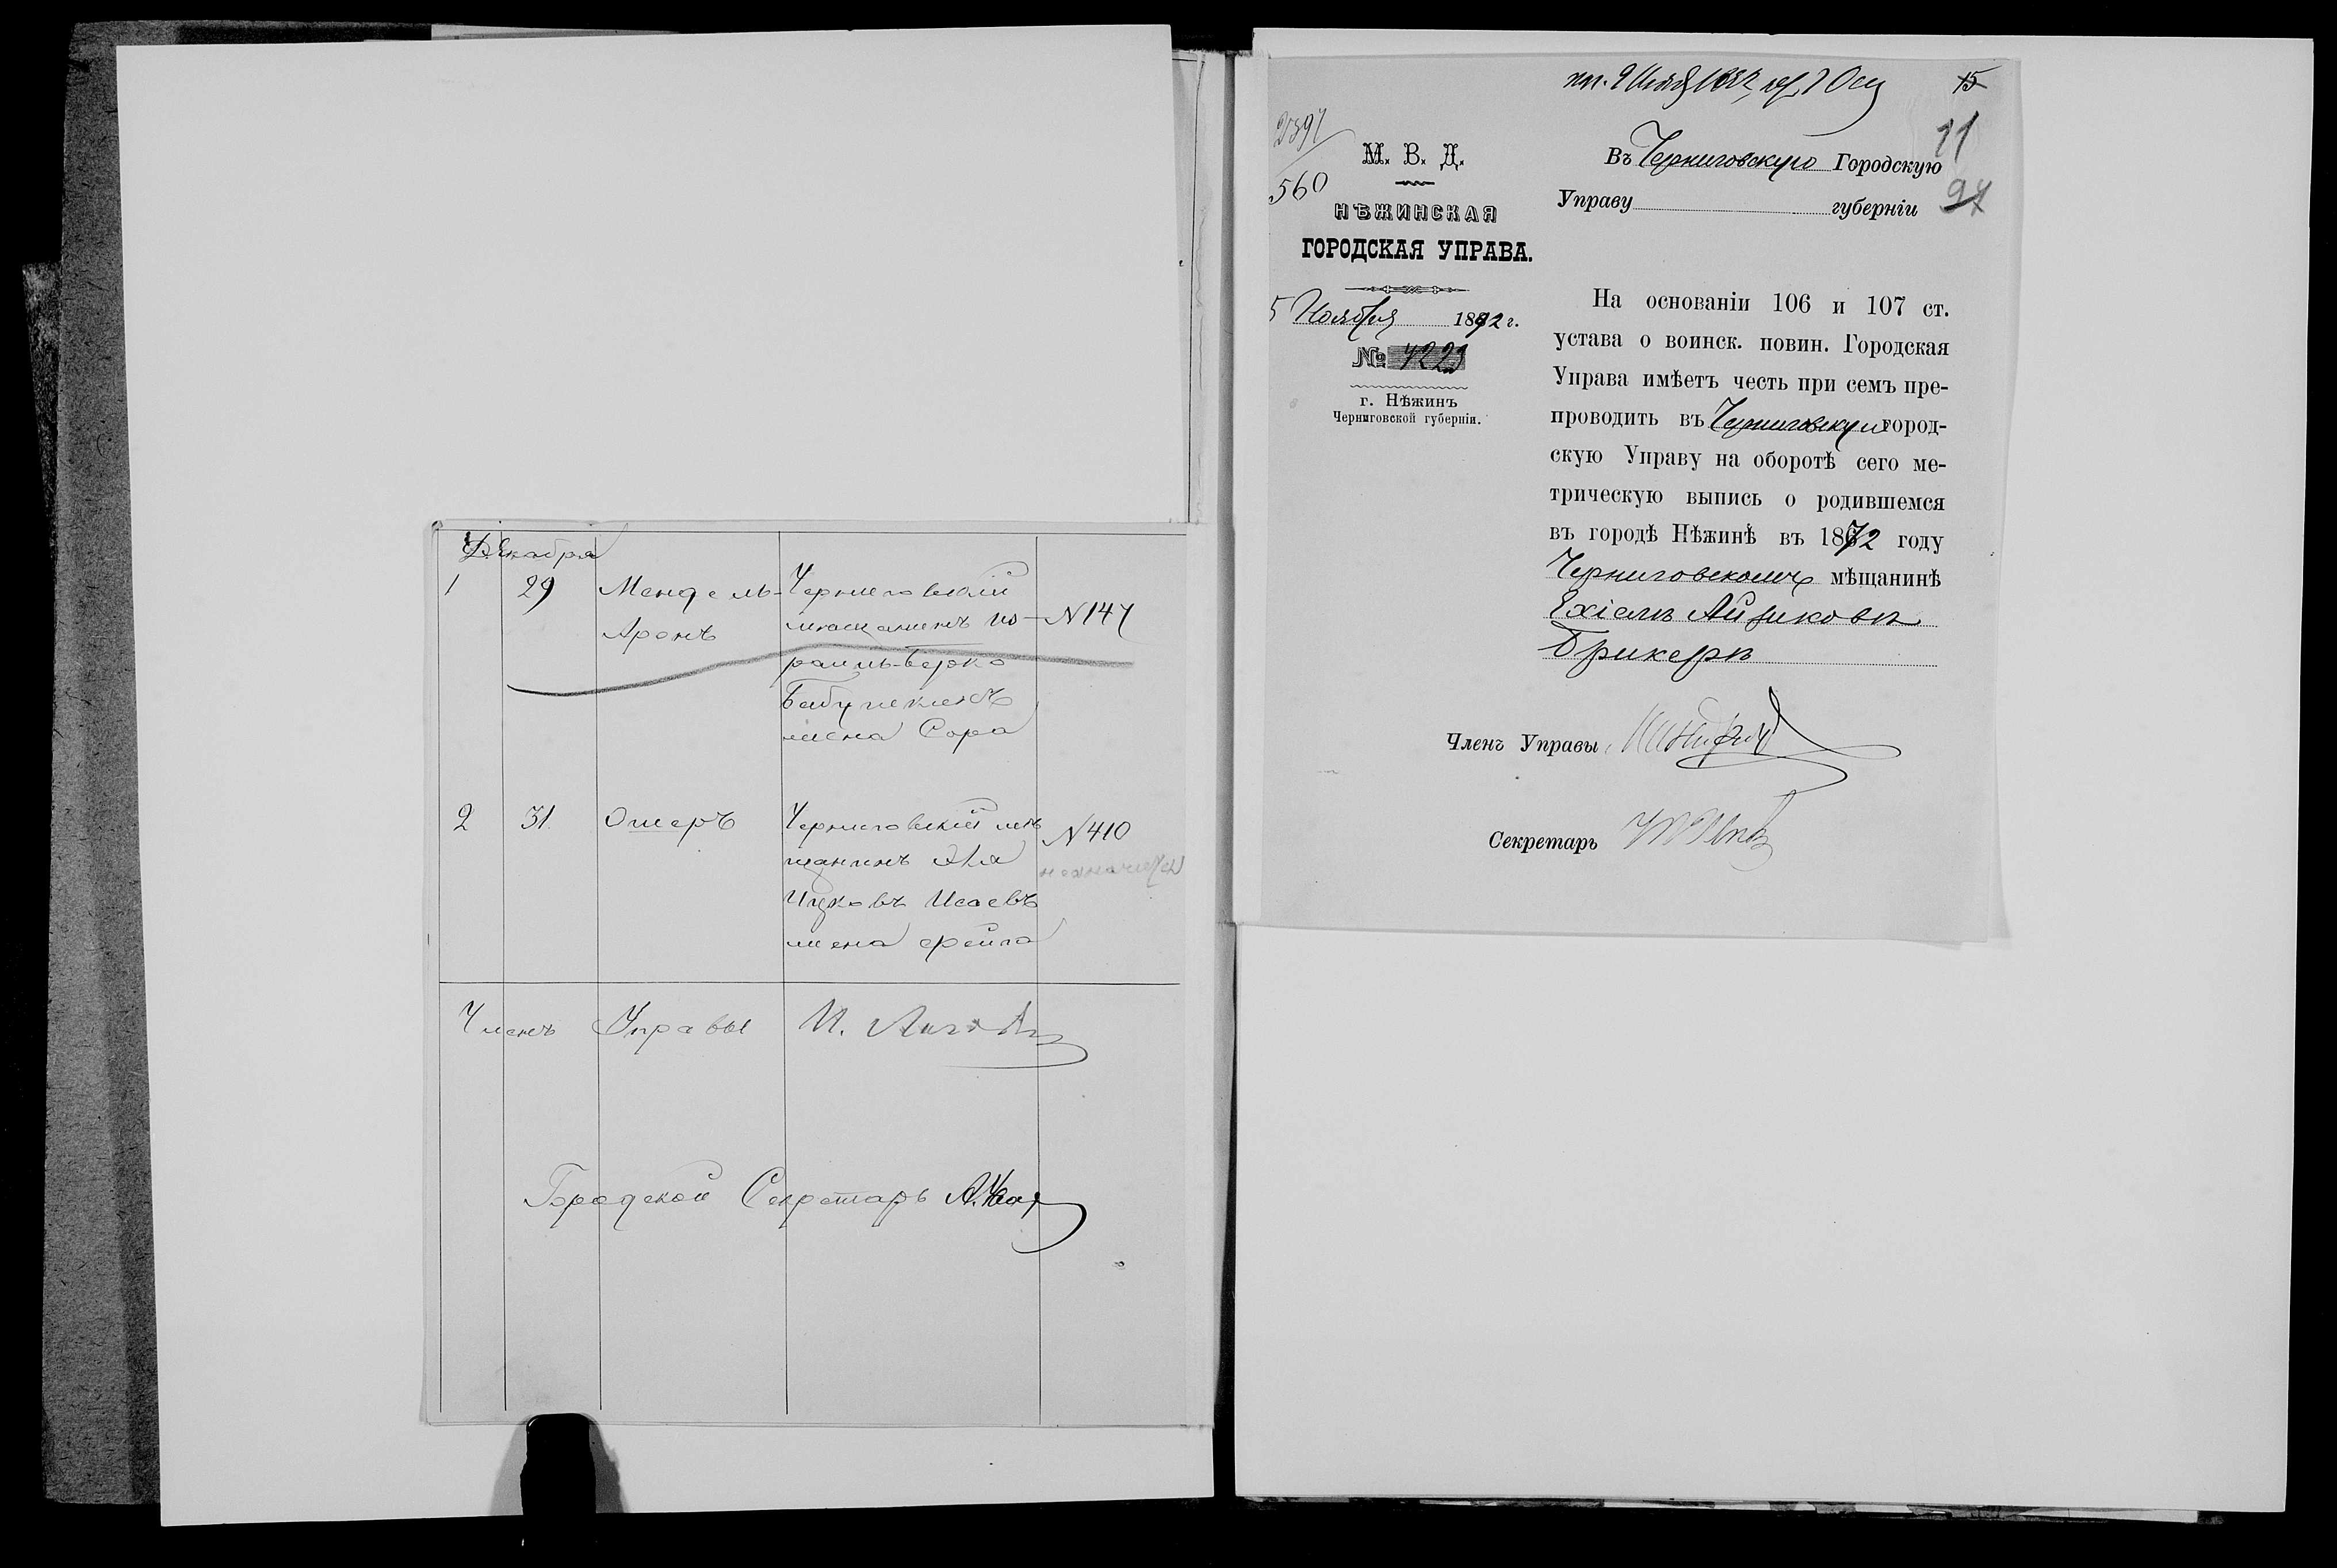 Декабря
1 29 Мендель- Черниговскій
Аронъ мѣщанинъ Из- N 147
раиль-Берко
жена Сора
2 31 Ошеръ Черниговскій мѣ- N 410
щанинъ Эля
Ицковъ Исаевъ
жена Фейга
Членъ Управы И.
Городской Секретарь А.
15
2597
11
560
97
М. В. Д.
НѢЖИНСКАЯ
ГОРОДСКАЯ УПРАВА.
5 Ноября 1892 г.
№ 4223
г. Нѣжинъ
Черниговской губерніи.
Въ Черниговскую Городскую
Управу губерніи
На основаніи 106 и 107 ст.
устава о воинск. повин. Городская
Управа имѣетъ честь при семъ пре-
проводить въ Черниговскую город-
скую Управу на оборотѣ сего ме-
трическую выпись о родившемся
въ городѣ Нѣжинѣ въ 1872 году
Черниговскомъ мѣщанинѣ
Ехіелѣ Айзиковѣ
Брикерѣ
Членъ Управы
Секретарь